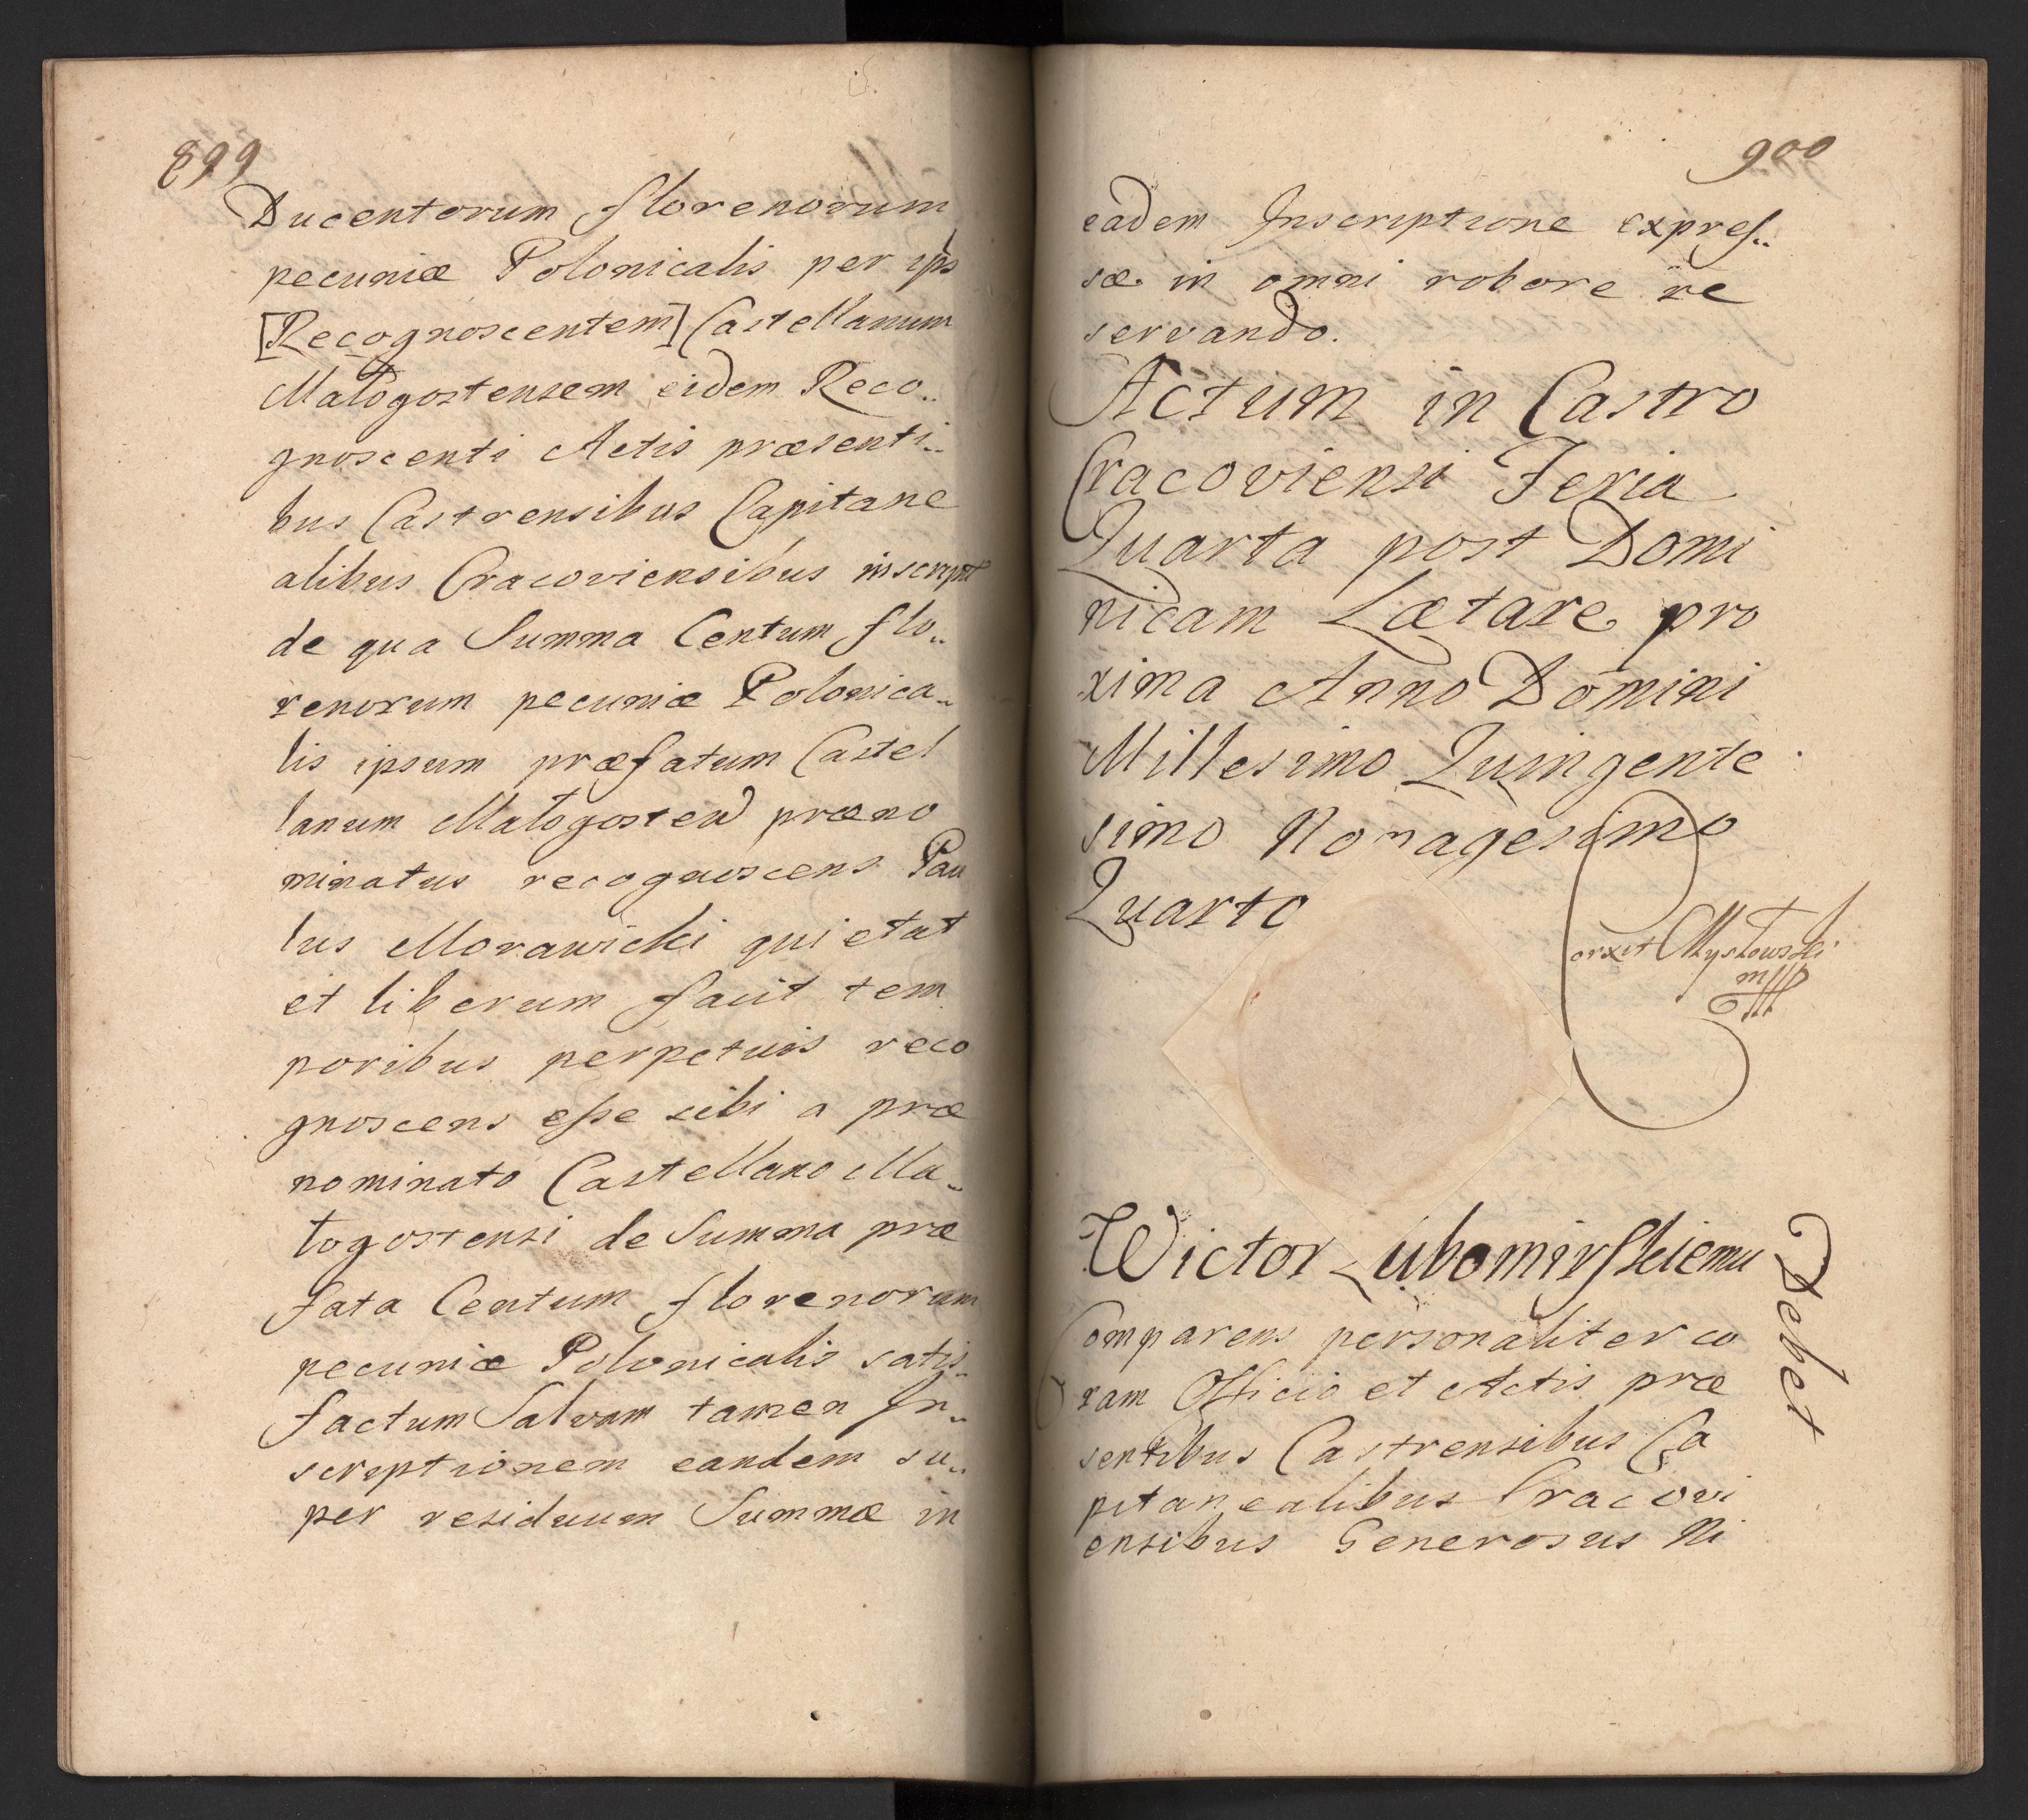 899
Ducentorum florenorum
pecuniæ Polonicalis per ips
[Recognoscentem] Castellanum
Małogostensem eidem Reco..
gnoscenti Actis præsenti..
bus Castrensibus Capitane
alibus Cracoviensibus inscript
de qua Summa Centum flo..
renorum pecuniæ Polonica..
lis ipsum præfatum Castel
lanum Małogosten præno
minatus recognoscens Pau
lus Morawicki quietat
et liberum facit tem
poribus perpetuis reco
gnoscens esse sibi a præ
nominato Castellano Ma..
łogostensi de Summa præ
fata Centum florenorum
pecuniæ Polonicalis satis..
factum Salvam tamen In..
scriptionem eandem su..
per residuum Summæ in
900
eadem Inscriptione expres..
sæ in omni robore re
servando.
Actum in Castro
Cracoviensi Feria
Quarta post Domi
nicam Lætare pro
xima Anno Domini
Millesimo Quingente
simo Nonagesimo
Quarto
orxit Mysłowski
mpp
Wictor Lubomirskiemu
Debet
Comparens personaliter co
ram Officio et Actis præ
sentibus Castrensibus Ca
pitanealibus Cracovi
ensibus Generosus Ni